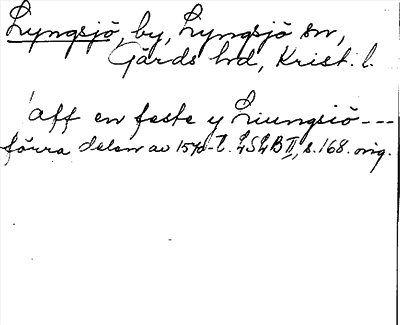 Lyngsjö, by, Lyngsjö sn,
Gärds hd, Krist. l.
aff en feste y Liungsiö---
förra delen av 1570-t. LSLB II, s. 168. orig.